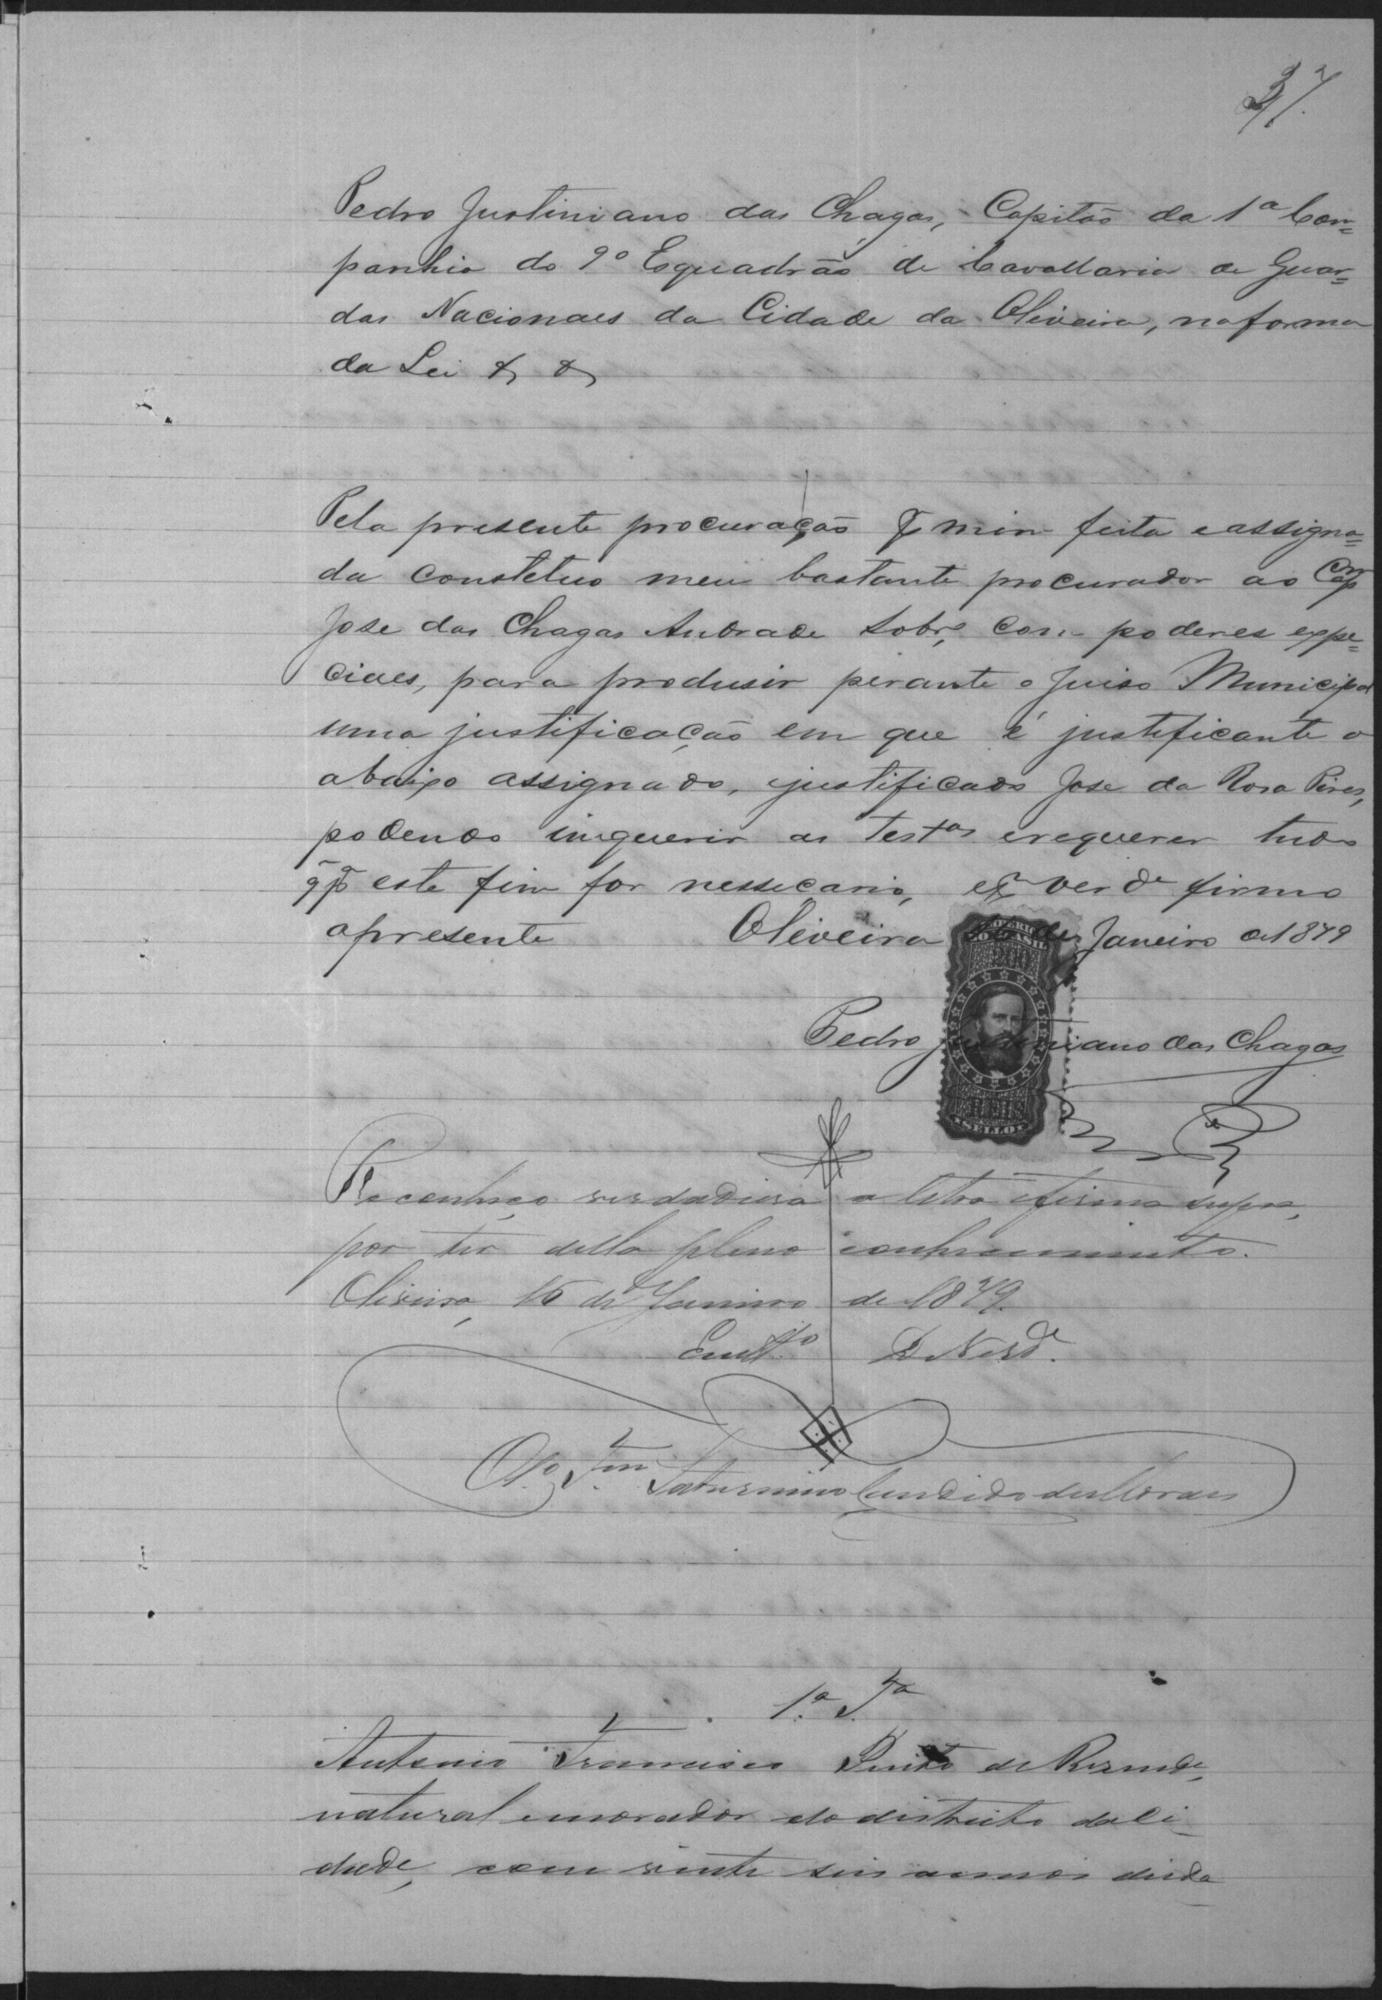 37.
Pedro Justiniano das Chagas, Capitão da 1ª Com=
panhia do 9º Esquadrão de Cavallaria de Guar=
das Nacionaes da Cidade da Oliveira, na forma
da Lei & &
Pela presente procuração p min feita e assigna=
da constetuo meu bastante procurador ao Cap
Jose das Chagas Andrade Sobrº, com poderes espe=
ciaes, para produsir perante o Juiso Municipal
uma justificação em que é justificante o
abaixo assignado, e justificado Jose da Rosa Pires,
podendo inquerir as testas e requerer tudo
q pª este fim for nessecario, e p verde firmo
a presente Oliveira de Janeiro de 1879
Pedro Justiniano das Chagas
IMPERIO
DO BRASIL
200
REIS
SELLO
Reconheço verdadeira a letra e firma supra,
por ter della pleno conhecimento.
Oliveira, 15 de Janeiro de 1879.
Em Ttº da Verdº.
O 1º Tam Saturnino Candido de Moraes
1.ª Tª
Antonio Francisco Pinto de Resende,
natural e morador do districto da Ci
dade, com vinte seis annos de ida